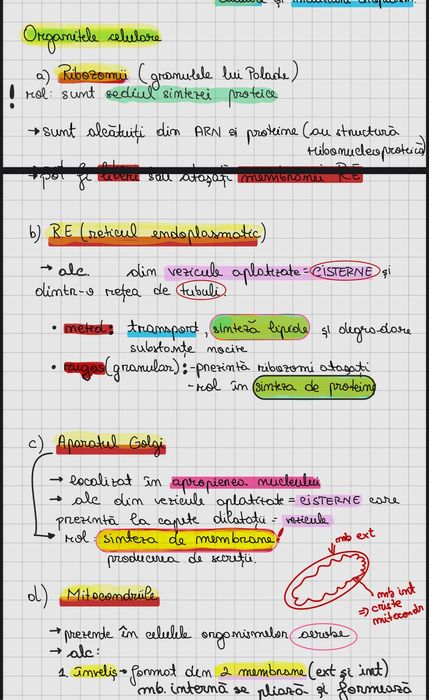 și
Organitele celulare
a) Ribozomii (granulele lui Palade)
! rol: sunt sediul sintezei proteice
→ sunt alcătuiți din ARN și proteine (au structură
ribonucleoproteică)
→ pot fi liberi sau atașați membranei RE
b) RE (reticul endoplasmatic)
→ alc. din vezicule aplatizate = CISTERNE și
dintr-o rețea de tubuli.
• neted: transport, sinteză lipide și degradare
substanțe nocive
• rugos (granular): - prezintă ribozomi atașați
- rol în sinteza de proteine
c) Aparatul Golgi
→ localizat în apropierea nucleului
→ alc din vezicule aplatizate = CISTERNE care
prezintă la capete dilatații = vezicule
→ rol: sinteza de membrane,
producerea de secreții.
mb ext
mb int
⇒ criste
mitocondr
d) Mitocondriile
→ prezente în celulele organismelor aerobe
→ alc:
1. înveliș → format din 2 membrane (ext și int)
mb. internă se pliază și formează